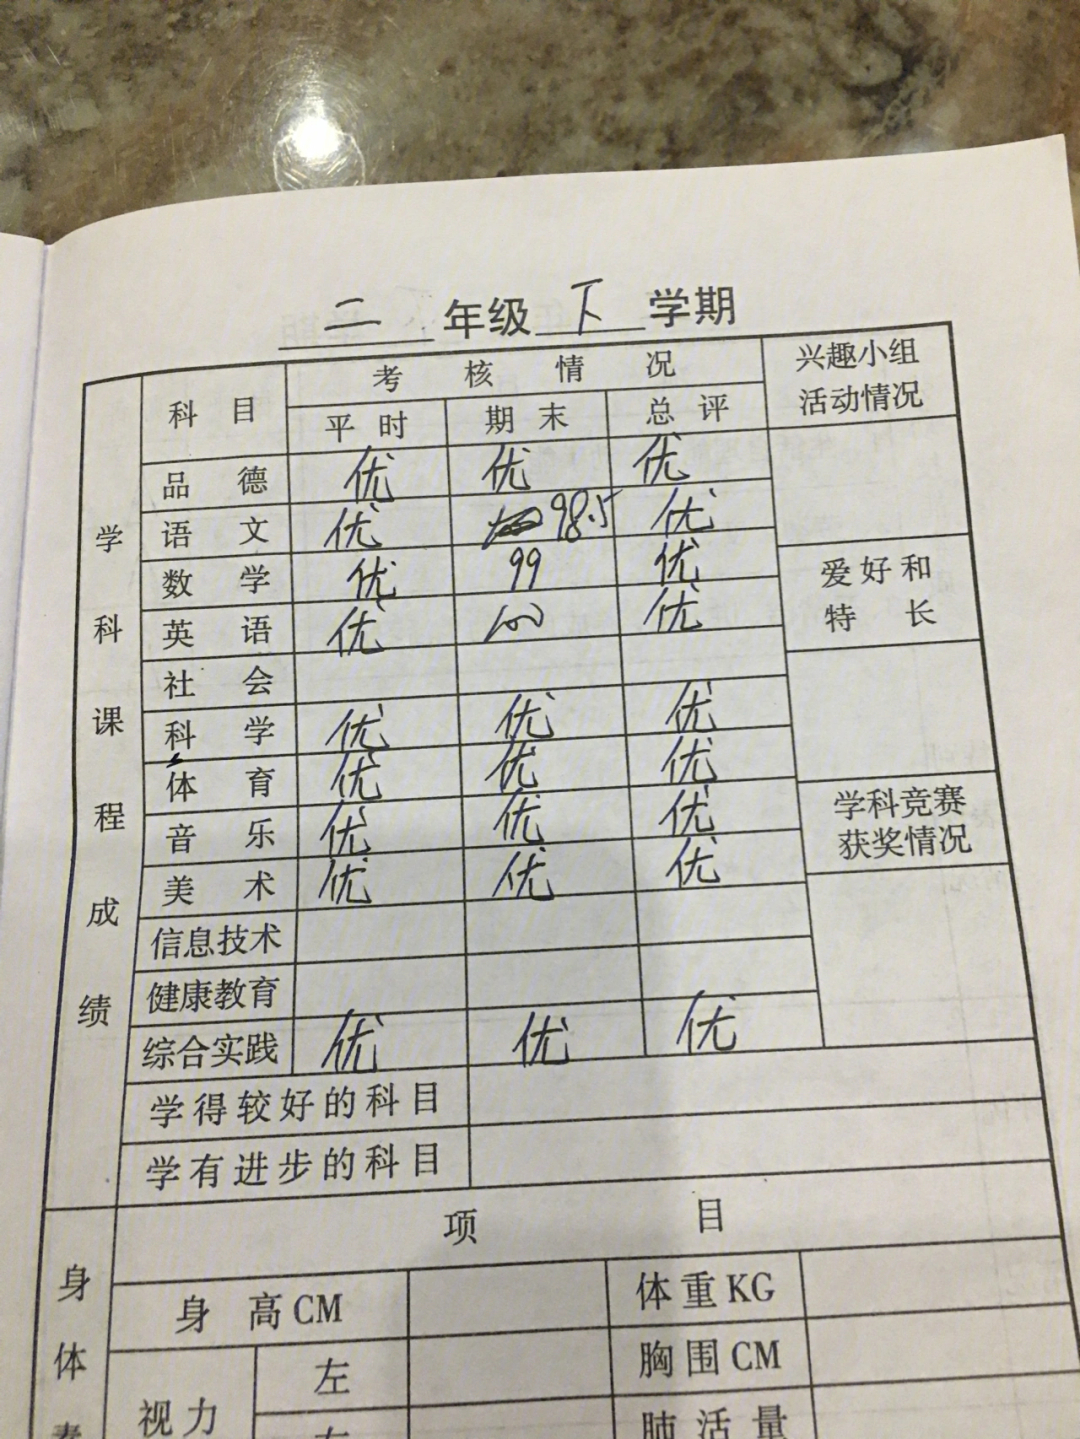 二 年级 下 学期
学科课程成绩
科目 考核情况 兴趣小组
平时 期末 总评 活动情况
品德 优 优 优
语文 优 98.5 优
数学 优 99 优 爱好和
英语 优 100 优 特长
社会
科学 优 优 优
体育 优 优 优
音乐 优 优 优 学科竞赛
美术 优 优 优 获奖情况
信息技术
健康教育
综合实践 优 优 优
学得较好的科目
学有进步的科目
身体
项目
身高CM 体重KG
视力 左 胸围CM
右 肺活量